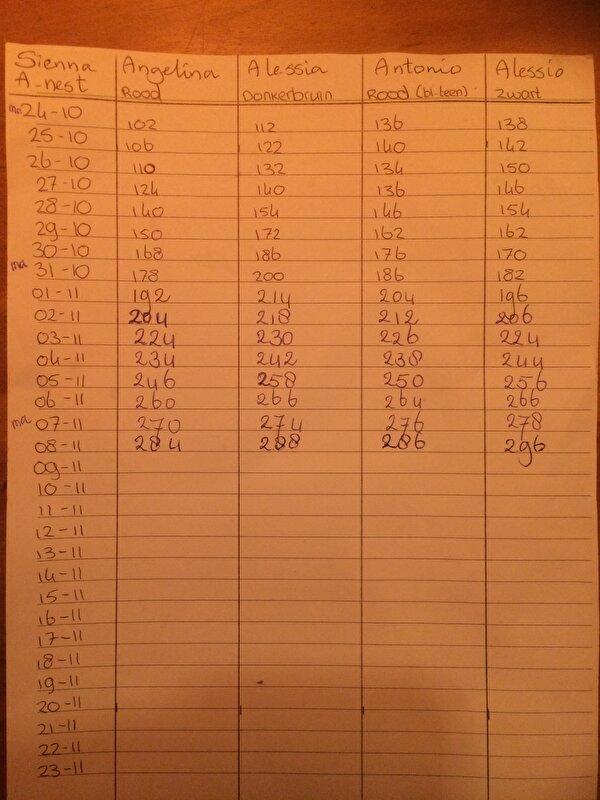 Sienna A-nest Angelina Rood Alessia Donkerbruin Antonio Rood (bl-teen) Alessio zwart
ma 24-10 102 112 136 138
25-10 106 122 140 142
26-10 110 132 134 150
27-10 124 140 136 146
28-10 140 154 146 154
29-10 150 172 162 162
30-10 168 186 176 170
ma 31-10 178 200 186 182
01-11 192 214 204 196
02-11 204 218 212 206
03-11 224 230 226 224
04-11 234 242 238 244
05-11 246 258 250 256
06-11 260 266 264 266
ma 07-11 270 274 276 278
08-11 284 288 286 296
09-11
10-11
11-11
12-11
13-11
14-11
15-11
16-11
17-11
18-11
19-11
20-11
21-11
22-11
23-11